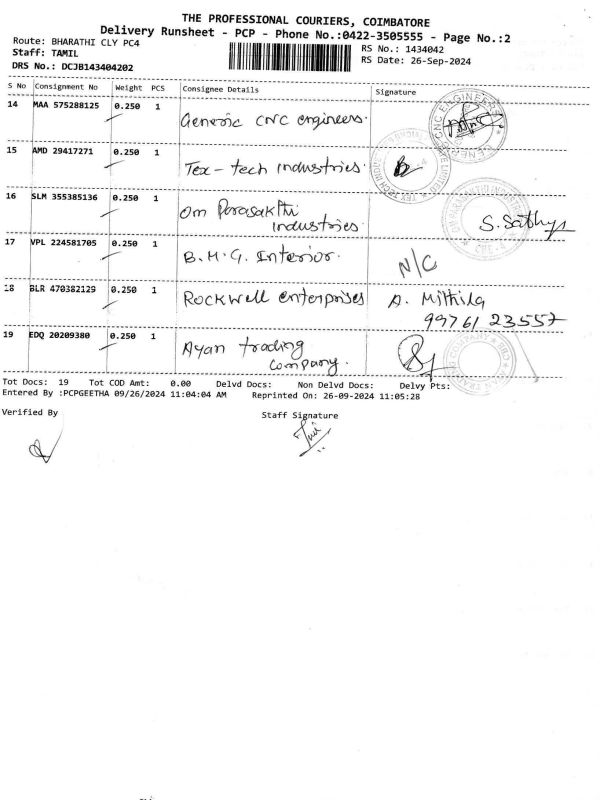 THE PROFESSIONAL COURIERS, COIMBATORE
Delivery Runsheet - PCP - Phone No.:0422-3505555 - Page No.:2
Route: BHARATHI CLY PC4 RS No.: 1434042
Staff: TAMIL RS Date: 26-Sep-2024
DRS No.: DCJB143404202
S No Consignment No Weight PCS Consignee Details Signature
14 MAA 575288125 0.250 1 Generic CNC engineers. CNC ENGINEERS
15 AMD 29417271 0.250 1 Tex-tech industries.
16 SLM 355385136 0.250 1 Om Parasakthi
industries. S. Sathya
17 VPL 224581705 0.250 1 B.M.G. Interior. N/C
18 BLR 470382129 0.250 1 Rockwell enterprises A. Mithila
99761 23557
19 EDQ 20209380 0.250 1 Ayan trading
company.
Tot Docs: 19 Tot COD Amt: 0.00 Delvd Docs: Non Delvd Docs: Delvy Pts:
Entered By :PCPGEETHA 09/26/2024 11:04:04 AM Reprinted On: 26-09-2024 11:05:28
Verified By Staff Signature